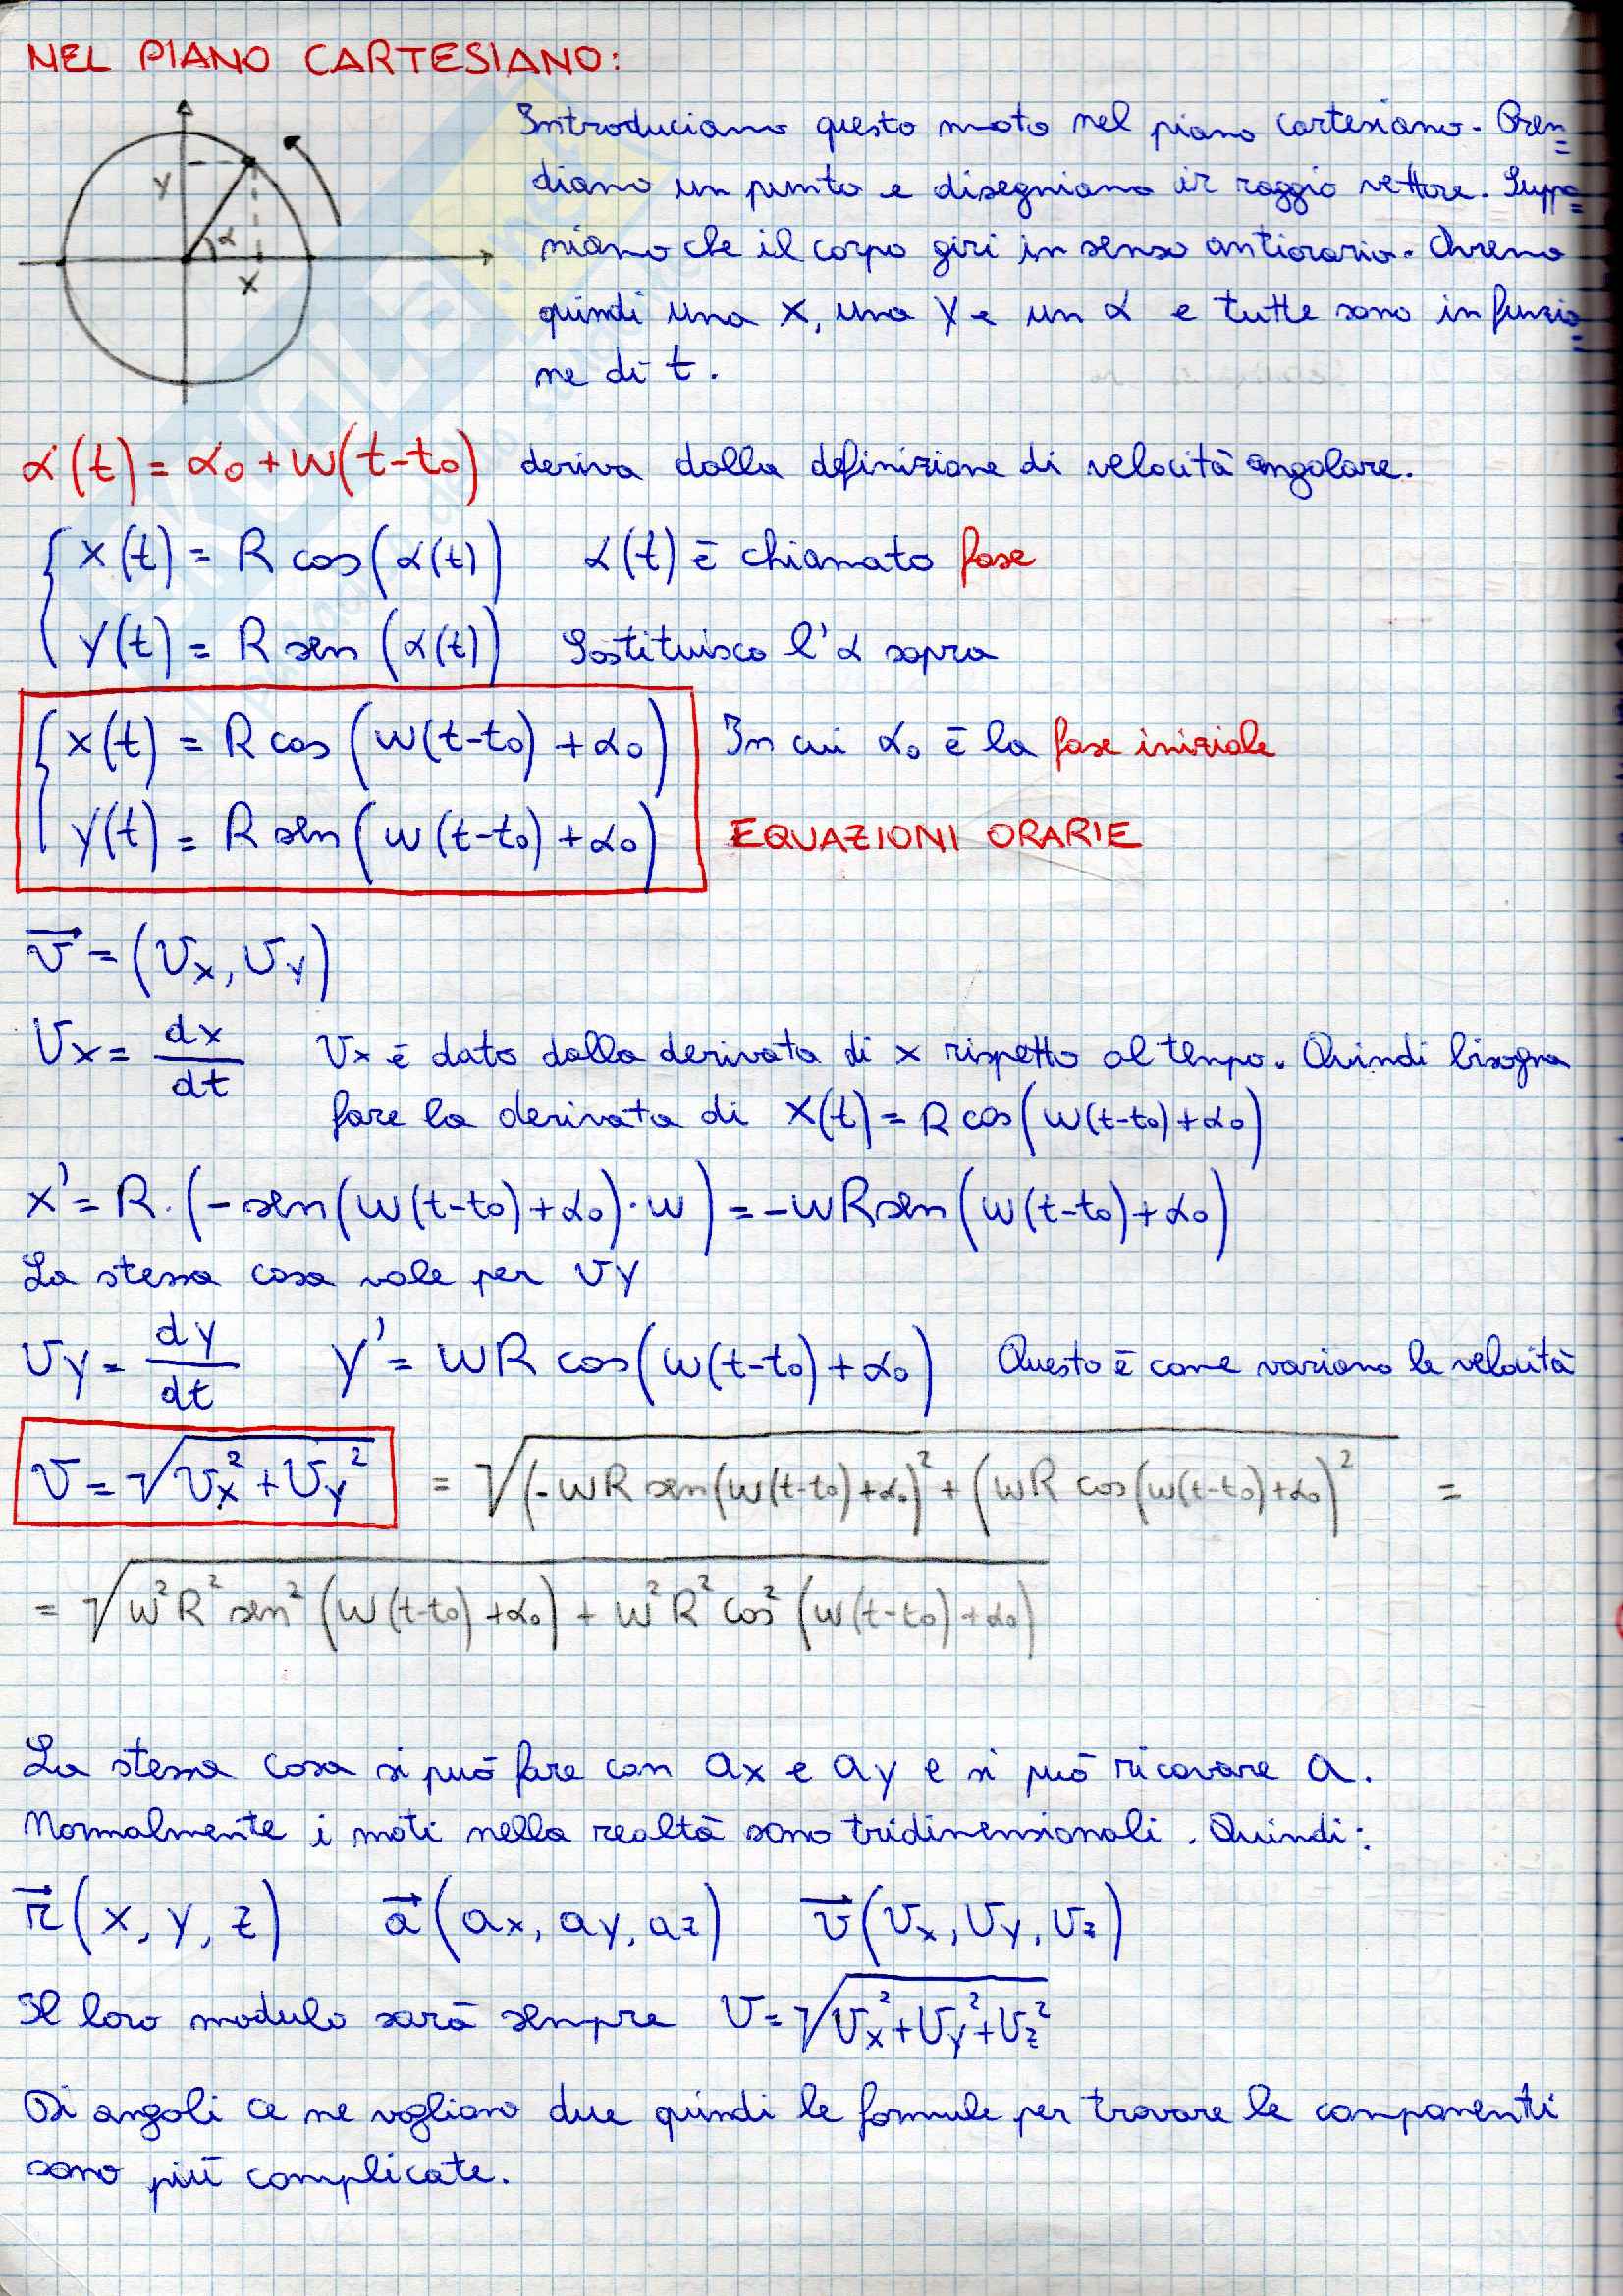 NEL PIANO CARTESIANO:
Introduciamo questo moto nel piano cartesiano. Pren=
diamo un punto e disegniamo il raggio vettore. Suppo=
niamo che il corpo giri in senso antiorario. Avremo
quindi una x, una y e un α e tutte sono in funzio=
ne di t.
y
α
x
α(t) = α₀ + w(t-t₀) deriva dalla definizione di velocità angolare.
x(t) = R cos(α(t)) α(t) è chiamato fase
y(t) = R sen(α(t)) Sostituisco l'α sopra
x(t) = R cos(w(t-t₀)+α₀) In cui α₀ è la fase iniziale
y(t) = R sen(w(t-t₀)+α₀) EQUAZIONI ORARIE
v⃗ = (vx, vy)
vx = dx/dt vx è dato dalla derivata di x rispetto al tempo. Quindi bisogna
fare la derivata di x(t) = R cos(w(t-t₀)+α₀)
x' = R·(-sen(w(t-t₀)+α₀)·w) = -wR sen(w(t-t₀)+α₀)
La stessa cosa vale per vy
vy = dy/dt y' = wR cos(w(t-t₀)+α₀) Questo è come variano le velocità
v = √(vx²+vy²) = √((-wR sen(w(t-t₀)+α₀)² + (wR cos(w(t-t₀)+α₀)²) =
= √(w²R² sen²(w(t-t₀)+α₀) + w²R² cos²(w(t-t₀)+α₀))
La stessa cosa si può fare con ax e ay e si può ricavare a.
Normalmente i moti nella realtà sono tridimensionali. Quindi:
r⃗(x, y, z) a⃗(ax, ay, az) v⃗(vx, vy, vz)
Il loro modulo sarà sempre v = √(vx²+vy²+vz²)
Di angoli ce ne vogliono due quindi le formule per trovare le componenti
sono più complicate.